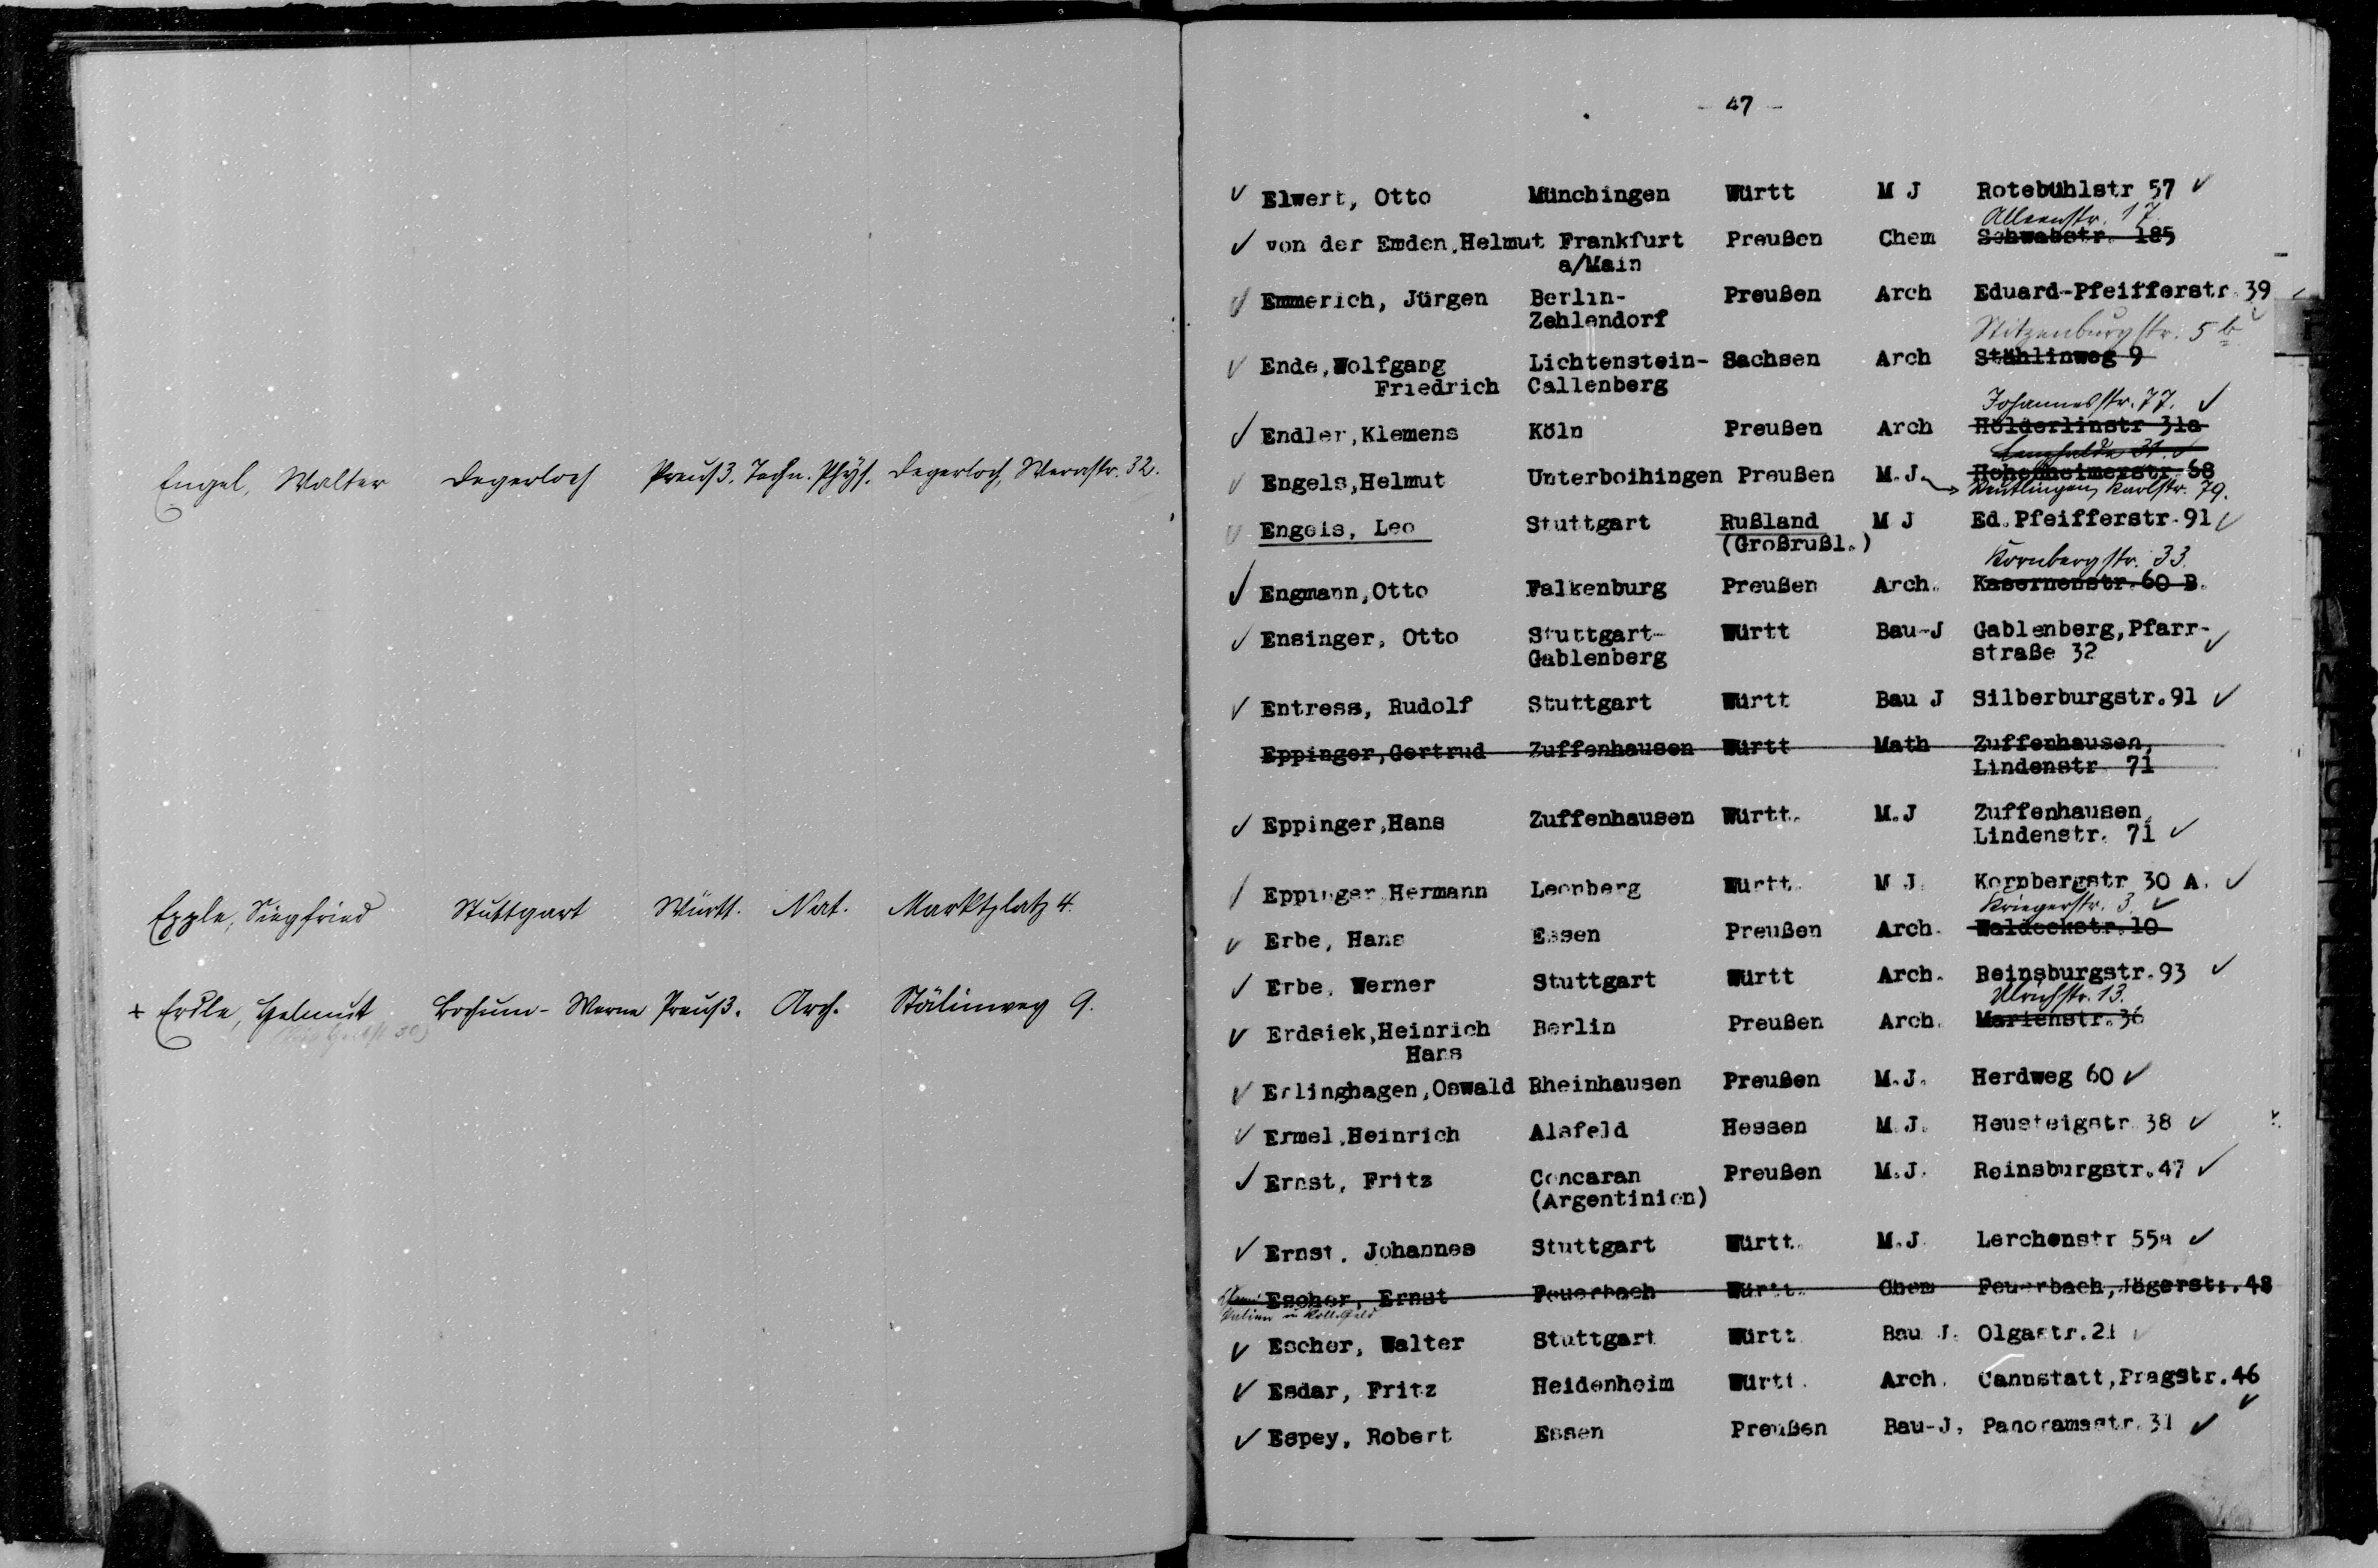 Engel, Walter Degerloch Preuß. Techn. Phys. Degerloch, Werastr. 32.
Epple, Siegfried Stuttgart Württ. Nat. Marktplatz 4.
+ Erdle, Helmut Bochum-Werne Preuß. Arch. Stälinweg 9.
- 47 -
✓ Elwert, Otto Münchingen Württ M J Rotebühlstr 57 ✓
Alleenstr. 17.
✓ von der Emden, Helmut Frankfurt Preußen Chem Schwabstr. 185
a/Main
✓ Emmerich, Jürgen Berlin- Preußen Arch Eduard-Pfeifferstr. 39 ✓
Zehlendorf
Stitzenburgstr. 5 b
✓ Ende, Wolfgang Lichtenstein- Sachsen Arch Stählinweg 9
Friedrich Callenberg
Johannesstr. 77. ✓
✓ Endler, Klemens Köln Preußen Arch Hölderlinstr 31a
Lenzhalde 31. ✓
✓ Engels, Helmut Unterboihingen Preußen M.J. Hohenheimerstr. 68
Reutlingen, Karlstr. 79.
✓ Engels, Leo Stuttgart Rußland M J Ed. Pfeifferstr. 91 ✓
(Großrußl.)
Kornbergstr. 33.
✓ Engmann, Otto Falkenburg Preußen Arch. Kasernenstr. 60 B.
✓ Ensinger, Otto Stuttgart- Württ Bau-J Gablenberg, Pfarr-
Gablenberg straße 32 ✓
✓ Entress, Rudolf Stuttgart Württ Bau J Silberburgstr. 91 ✓
Eppinger, Gertrud Zuffenhausen Württ Math Zuffenhausen,
Lindenstr. 71
✓ Eppinger, Hans Zuffenhausen Württ. M.J Zuffenhausen,
Lindenstr. 71 ✓
/ Eppinger Hermann Leonberg Württ. M J. Kornbergstr 30 A. ✓
Kriegerstr. 3. ✓
✓ Erbe, Hans Essen Preußen Arch. Waldeckstr. 10
✓ Erbe, Werner Stuttgart Württ Arch. Reinsburgstr. 93 ✓
Ulrichstr. 13.
✓ Erdsiek, Heinrich Berlin Preußen Arch. Marienstr. 36
Hans
✓ Erlinghagen, Oswald Rheinhausen Preußen M.J. Herdweg 60 ✓
✓ Ermel, Heinrich Alsfeld Hessen M.J. Heusteigstr 38 ✓
✓ Ernst, Fritz Concaran Preußen M.J. Reinsburgstr. 47 ✓
(Argentinien)
✓ Ernst, Johannes Stuttgart Württ. M.J. Lerchenstr 55a ✓
Escher, Ernst Feuerbach Württ. Chem Feuerbach, Jägerstr. 48
✓ Escher, Walter Stuttgart Württ Bau J. Olgastr. 21 ✓
✓ Esdar, Fritz Heidenheim Württ. Arch. Cannstatt, Pragstr. 46
✓ Espey, Robert Essen Preußen Bau-J. Panoramastr. 31 ✓